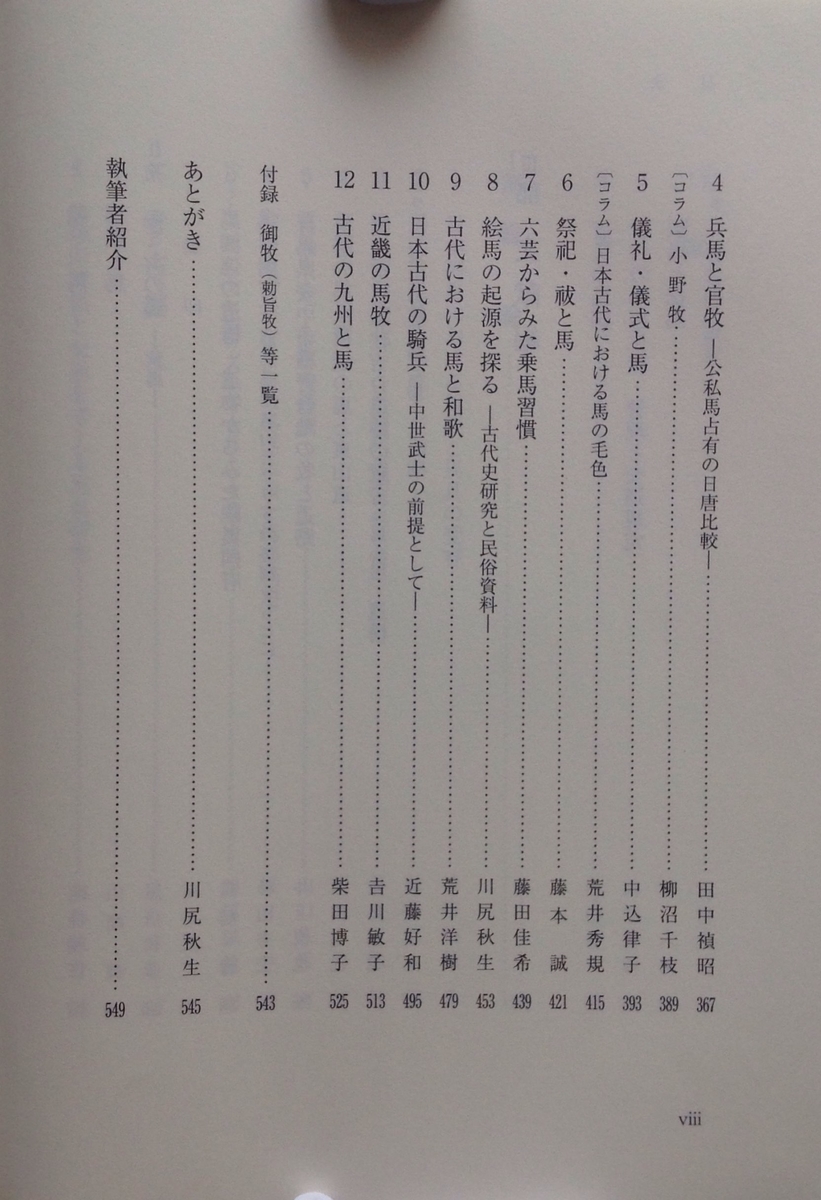 4 兵馬と官牧 ―公私馬占有の日唐比較― 田中禎昭 367
〔コラム〕小野牧 柳沼千枝 389
5 儀礼・儀式と馬 中込律子 393
〔コラム〕日本古代における馬の毛色 荒井秀規 415
6 祭祀・祓と馬 藤本誠 421
7 六芸からみた乗馬習慣 藤田佳希 439
8 絵馬の起源を探る ―古代史研究と民俗資料― 川尻秋生 453
9 古代における馬と和歌 荒井洋樹 479
10 日本古代の騎兵 ―中世武士の前提として― 近藤好和 495
11 近畿の馬牧 𠮷川敏子 513
12 古代の九州と馬 柴田博子 525
付録 御牧（勅旨牧）等一覧 543
あとがき 川尻秋生 545
執筆者紹介 549
viii